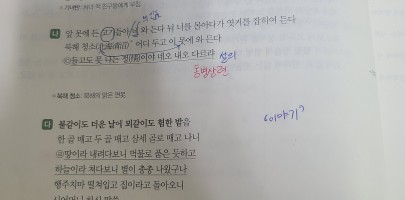 앞 못에 든 고기들아 와 든다 뉘 너를 몰아다가 엿커를 잡히여 든다
북해 청소(北海淸沼) 어디 두고 이 못에 와 든다
들고도 못 나는 정(情)이야 네오 내오 다르랴 설의
동병상련
북해 청소
다 물같이도 더운 날에 뫼같이도 험한 밭을
한 골 매고 두 골 매고 삼세 골로 매고 나니
땅이라 내려다보니 먹물로 품은 듯하고
하늘이라 쳐다보니 별이 총총 나왔구나
행주치마 떨쳐입고 집이라고 돌아오니
이야기?